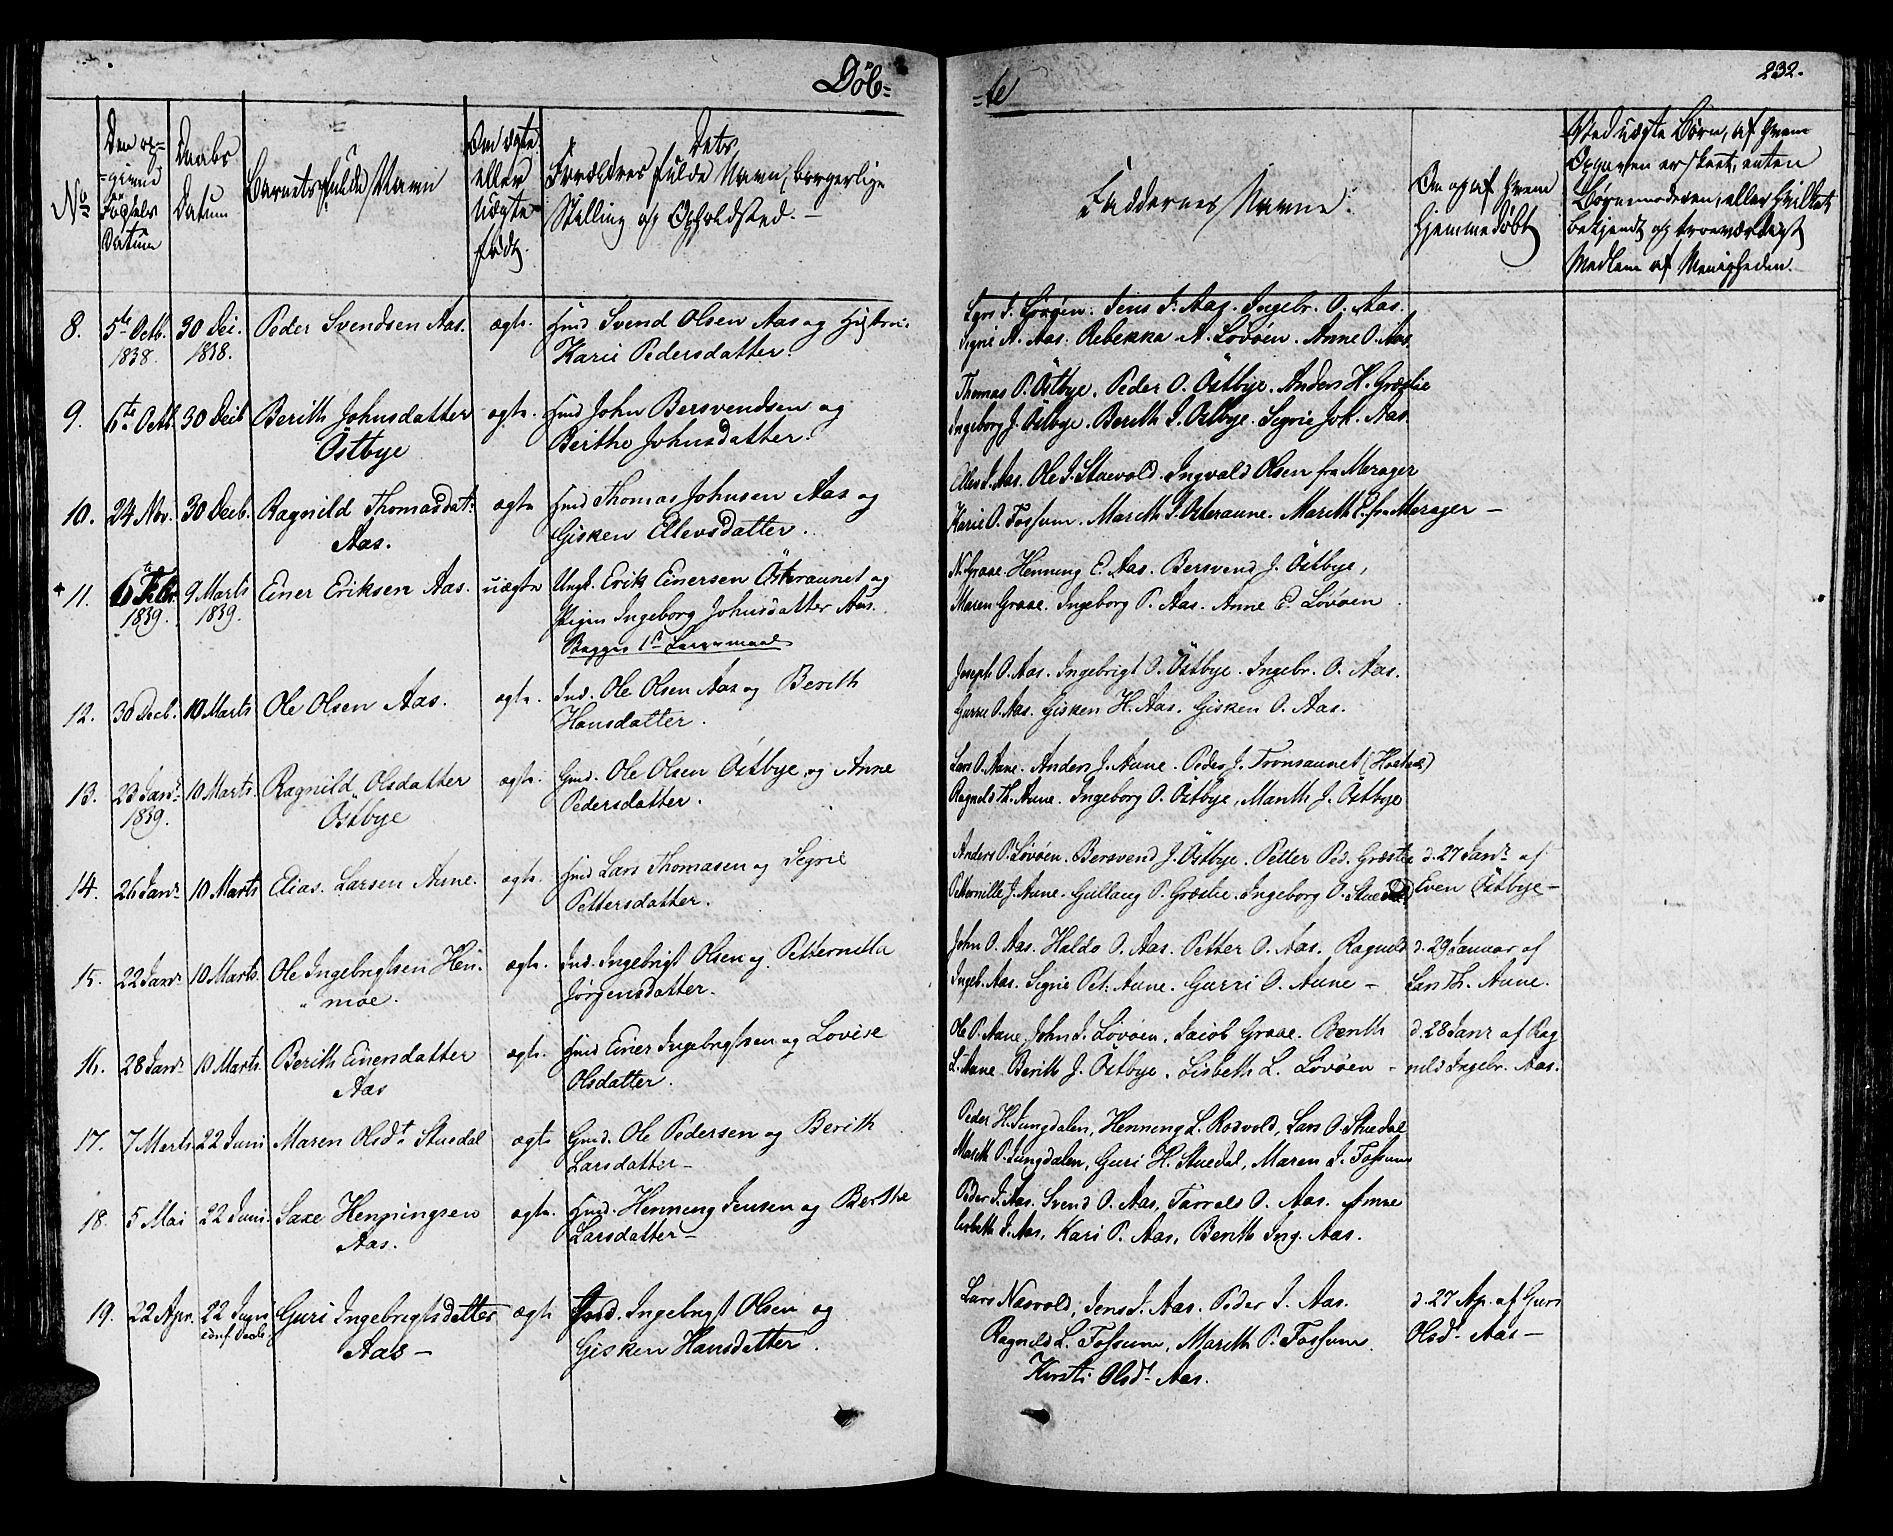 Döb=
=te
232.
No
Den op=
=givne
Födsels
Datum
Daabs
Datum
Barnets fulde Navn
Om ægte
eller
Uægte
född.
Dets
Forældres fulde Navn, borgerlige
Stilling og Opholdsted. —
Faddernes Navne.
Om og af hvem
hjemmedöbt
Ved uægte Börn, af hvem
Opgaven er skeet, enten
Barnemoderen, eller hvilket
bekjendt og troeværdigt
Medlem af Menigheden.
8. 5te Octb. 30 Dec. Peder Svendsen Aas. ægte. Hmd Svend Olsen Aas og Hustrue
1838. 1838. Karie Pedersdatter.
Jens J. Aas. Ingebr. O. Aas.
Signe A. Aas. Rebekka A. Lövöen. Anne O. Aas.
9. 6te Octb. 30 Decb Berith Johnsdatter ægte. Hmd John Bersvendsen og
Östbye Berithe Johnsdatter.
Thomas P. Östbye. Peder O. Östbye. Anders H. Græslie
Ingeborg J. Östbye. Berith I. Östbye. Segrie Joh. Aas.
10. 24 Nov. 30 Decb. Ragnild Thomasdat. ægte Hmd Thomas Johnsen Aas og
Aas. Gisken Ellevsdatter.
Ellev I. Aas. Ole I. Stuevold. Ingvald Olsen fra Merager
Karie O. Fossum. Mareth I. Österaune. Mareth P. fra Merager —
11. 6te Febr. 9 Marts Einer Eriksen Aas. uægte Ungk. Erik Einersen Österaunet og
1839. 1839. Pigen Ingeborg Johnsdatter Aas.
Begges 1ste Leiermaal
N. Graae. Henning E. Aas. Bersvend J. Östbye,
Maren Graae. Ingeborg P. Aas. Anne E. Lövöen
12. 30 Decb. 10 Marts Ole Olsen Aas. ægte. Ind. Ole Olsen Aas og Berith
Hansdatter.
Joseph O. Aas. Ingebrigt O. Östbye. Ingebr. O. Aas.
Gurru O. Aas. Gisken H. Aas. Gisken O. Aas.
13. 23 Janr. 10 Marts. Ragnild Olsdatter ægte. Gmd. Ole Olsen Östbye og Anne
1839. Östbye Pedersdatter.
Lars O. Aune. Anders J. Aune. Peder J. Tronsaunet
Ragnild Th. Aune. Ingeborg O. Östbye, Marith J. Östbye
14. 26 Janr 10 Marts Elias Larsen Aune. ægte. Hmd Lars Thomasen og Segrie
Pettersdatter.
Anders P. Lövöen. Bersvend J. Östbye. Petter Ped. Græslie d. 27 Janr. af
Petternille J. Aune. Gullaug P. Græslie. Ingeborg O. Stuedal Even Östbye —
15. 22 Janr 10 Marts Ole Ingebrigtsen Hen= ægte. Ind. Ingebrigt Olsen og Petternilla
moe. Jörgensdatter.
John O. Aas. Haldo O. Aas. Petter O. Aas. Ragnild d. 29 Januar af
Ingeb. Aas. Signe Pet. Aune. Gurri O. Aune — Lars Th. Aune.
16. 28 Janr 10 Marts. Berith Einersdatter ægte. Hmd Einer Ingebrigtsen og Lovise
Aas Olsdatter.
Ole P. Aune, John I. Lövöen, Jacob Graae. Berith d. 28 Janr af Rag
L. Aune. Berith J. Östbye. Lisbeth L. Lövöen — nild Ingebr. Aas.
17. 7 Marts 22 Juni Maren Olsdt. Stuedal ægte Gmd. Ole Pedersen og Berith
Larsdatter —
Peder H. Lungdalen, Henning L. Rosvold, Lars O. Stuedal
Mareth P. Lungdalen, Guri H. Stuedal, Maren I. Fossum
18. 5 Mai 22 Juni Saxe Henningsen ægte. Hmd. Henning Jensen og Berthe
Aas. Larsdatter —
Peder J. Aas. Svend O. Aas, Tarrald O. Aas. Anne
Lisbeth I. Aas, Kari P. Aas, Berith Ing. Aas.
19. 22 Apr. 22 Juni Guri Ingebrigtsdatter ægte Gmd. Ingebrigt Olsen og
Aas — Gisken Hansdatter.
Lars Næsvold, Jens J. Aas. Peder I. Aas. d. 27 Ap. af Guri
Ragnild L. Fossum, Mareth P. Fossum. Olsdt. Aas —
Kirsti Olsdt. Aas.